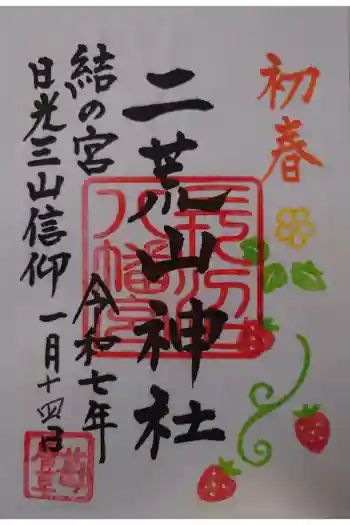 初春
二荒山神社
結の宮
令和七年
日光三山信仰
一月十四日
八幡宮